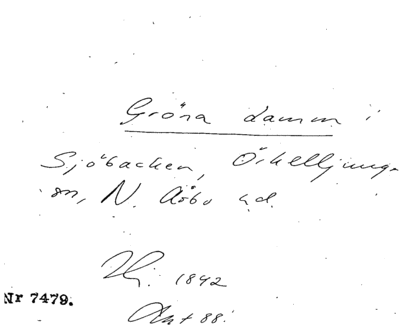 Gröna damm i
Sjöbacken, Örkelljunga
sn, N. Åsbo hd.
1842
Nr 7479.
88.